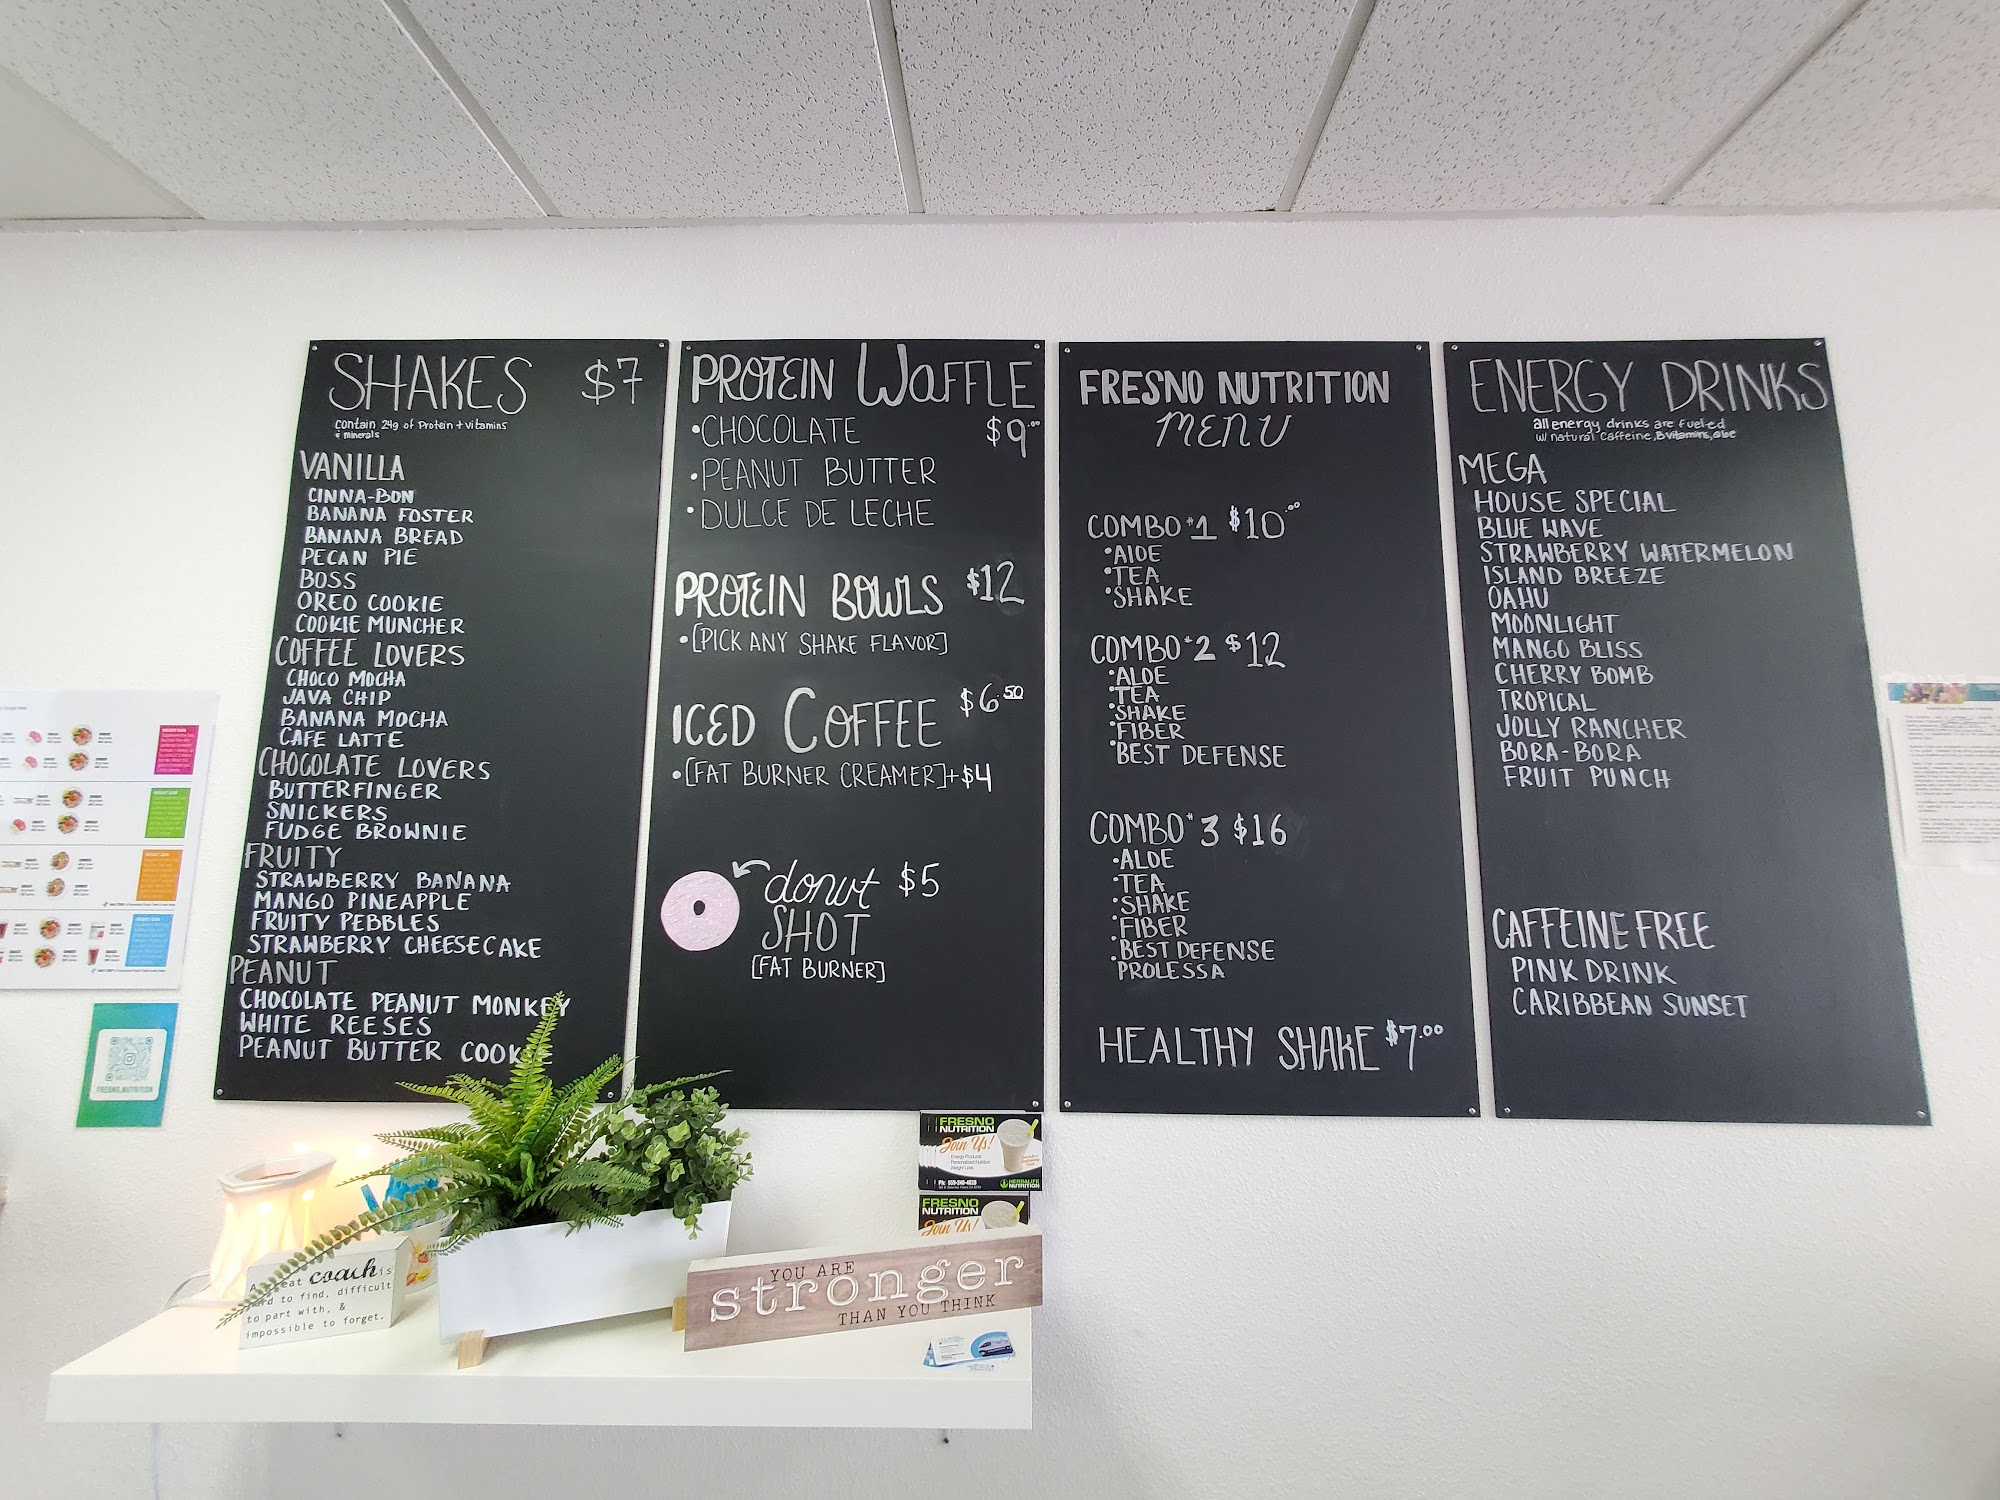 SHAKES $7
contain 24g of Protein + vitamins
& minerals
VANILLA
CINNA-BON
BANANA FOSTER
BANANA BREAD
PECAN PIE
BOSS
OREO COOKIE
COOKIE MUNCHER
COFFEE LOVERS
CHOCO MOCHA
JAVA CHIP
BANANA MOCHA
CAFE LATTE
CHOCOLATE LOVERS
BUTTERFINGER
SNICKERS
FUDGE BROWNIE
FRUITY
STRAWBERRY BANANA
MANGO PINEAPPLE
FRUITY PEBBLES
STRAWBERRY CHEESECAKE
PEANUT
CHOCOLATE PEANUT MONKEY
WHITE REESES
PEANUT BUTTER COOKIE
PROTEIN WAFFLE
•CHOCOLATE $9.00
•PEANUT BUTTER
•DULCE DE LECHE
PROTEIN BOWLS $12
•[PICK ANY SHAKE FLAVOR]
ICED COFFEE $6.50
•[FAT BURNER CREAMER]+$4
donut $5
SHOT
[FAT BURNER]
FRESNO NUTRITION
MENU
COMBO #1 $10.00
•ALOE
•TEA
•SHAKE
COMBO #2 $12
•ALOE
•TEA
•SHAKE
•FIBER
•BEST DEFENSE
COMBO #3 $16
•ALOE
•TEA
•SHAKE
•FIBER
•BEST DEFENSE
•PROLESSA
HEALTHY SHAKE $7.00
ENERGY DRINKS
all energy drinks are fueled
w/ natural caffeine, B vitamins, aloe
MEGA
HOUSE SPECIAL
BLUE WAVE
STRAWBERRY WATERMELON
ISLAND BREEZE
OAHU
MOONLIGHT
MANGO BLISS
CHERRY BOMB
TROPICAL
JOLLY RANCHER
BORA-BORA
FRUIT PUNCH
CAFFEINE FREE
PINK DRINK
CARIBBEAN SUNSET
FRESNO.NUTRITION
FRESNO
NUTRITION
Join Us!
Energy Products
Personalized Nutrition
Weight Loss
HERBALIFE
NUTRITION
FRESNO
NUTRITION
Join Us!
A great coach is
hard to find, difficult
to part with, &
impossible to forget.
YOU ARE
stronger
THAN YOU THINK